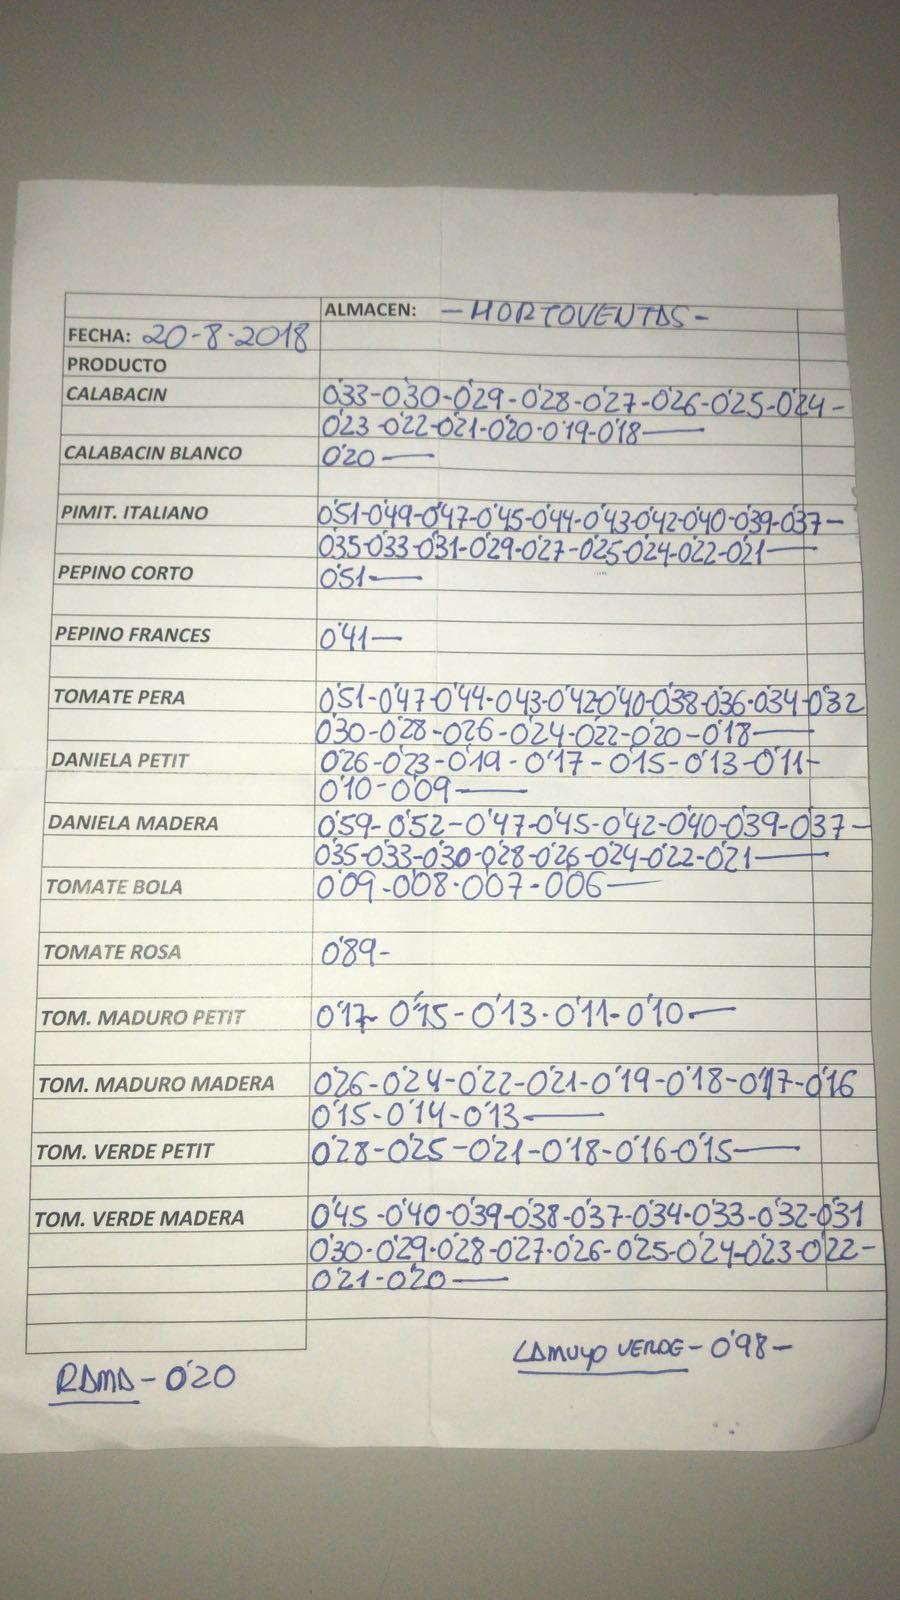 ALMACEN: -HORTOVENTAS-
FECHA: 20-8-2018
PRODUCTO
CALABACIN 0'33-0'30-0'29-0'28-0'27-0'26-0'25-0'24-
0'23-0'22-0'21-0'20-0'19-0'18-
CALABACIN BLANCO 0'20-
PIMIT. ITALIANO 0'51-0'49-0'47-0'45-0'44-0'43-0'42-0'40-0'39-0'37-
0'35-0'33-0'31-0'29-0'27-0'25-0'24-0'22-0'21-
PEPINO CORTO 0'51-
PEPINO FRANCES 0'41-
TOMATE PERA 0'51-0'47-0'44-0'43-0'42-0'40-0'38-0'36-0'34-0'32
0'30-0'28-0'26-0'24-0'22-0'20-0'18-
DANIELA PETIT 0'26-0'23-0'19-0'17-0'15-0'13-0'11-
0'10-0'09-
DANIELA MADERA 0'59-0'52-0'47-0'45-0'42-0'40-0'39-0'37-
0'35-0'33-0'30-0'28-0'26-0'24-0'22-0'21-
TOMATE BOLA 0'09-0'08-0'07-0'06-
TOMATE ROSA 0'89-
TOM. MADURO PETIT 0'17-0'15-0'13-0'11-0'10-
TOM. MADURO MADERA 0'26-0'24-0'22-0'21-0'19-0'18-0'17-0'16
0'15-0'14-0'13-
TOM. VERDE PETIT 0'28-0'25-0'21-0'18-0'16-0'15-
TOM. VERDE MADERA 0'45-0'40-0'39-0'38-0'37-0'34-0'33-0'32-0'31
0'30-0'29-0'28-0'27-0'26-0'25-0'24-0'23-0'22-
0'21-0'20-
LAMUYO VERDE-0'98-
RAMA-0'20